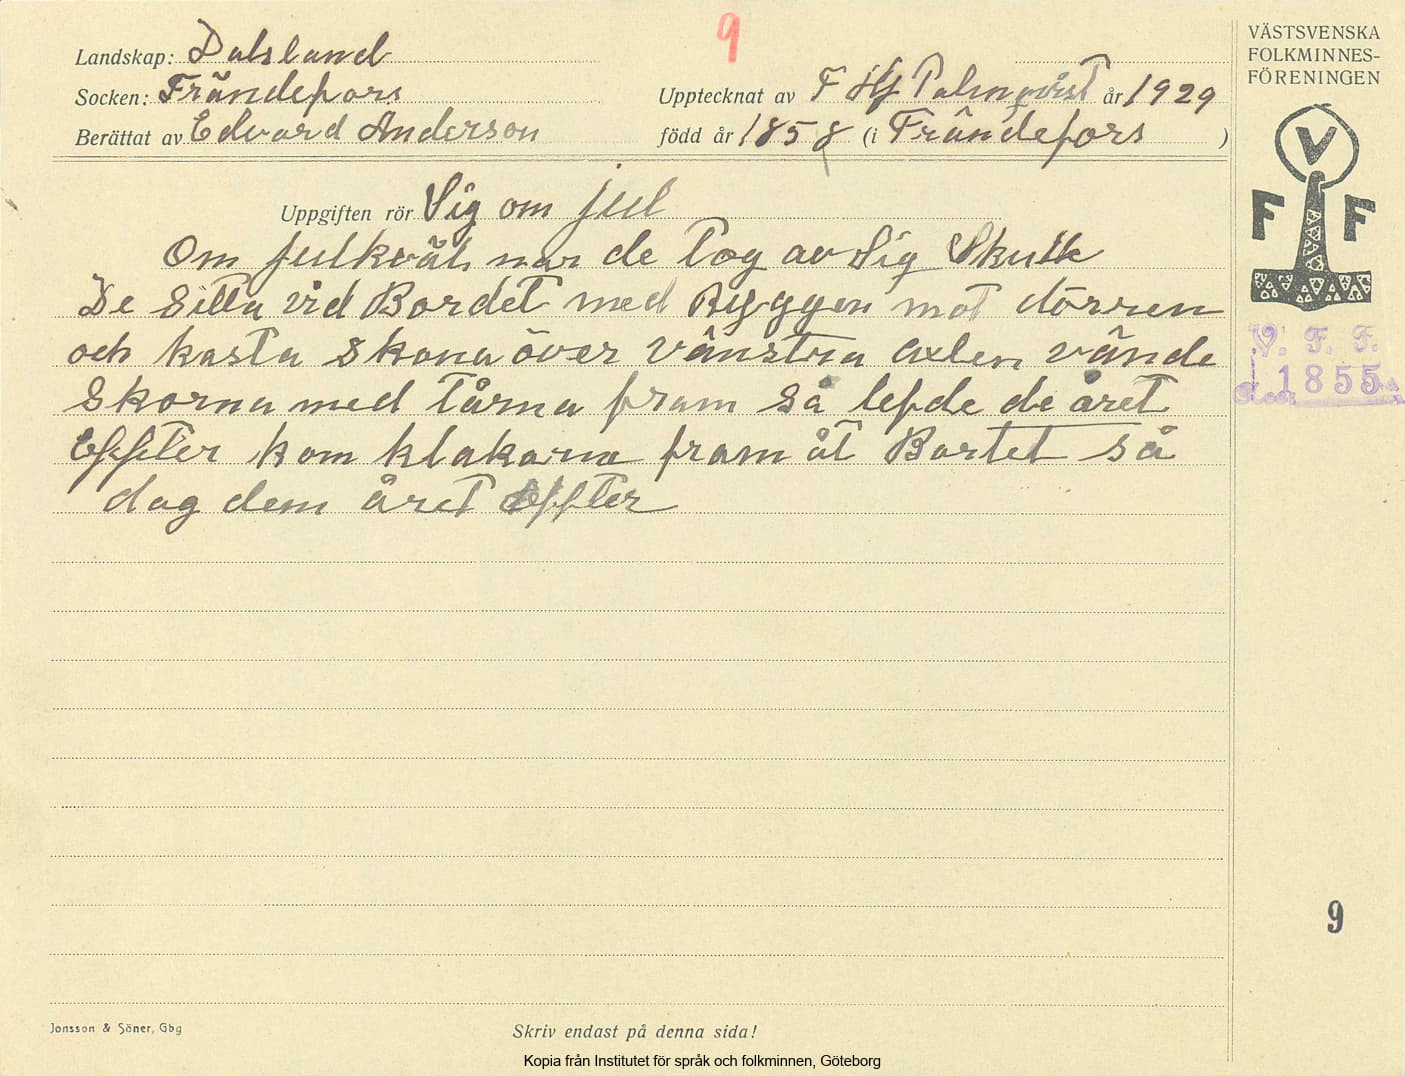 9
Landskap: Dalsland
Socken: Frändefors
Berättat av Edvard Anderson
Upptecknat av F Hj Palmqvist år 1929
född år 1858 (i Frändefors )
VÄSTSVENSKA
FOLKMINNES-
FÖRENINGEN
V
F F
V. F. F.
1855
Uppgiften rör Sig om jul
Om julkväl när de tog av Sig Skuth
De Sitta vid Bordet med Ryggen mot dörren
och kasta Skona över vänstra axlen vände
Skorna med tårna fram så lefde de året
Effter kom klakarna fram åt Bortet så
dog dem året Effter
9
Jonsson & Söner, Gbg
Skriv endast på denna sida!
Kopia från Institutet för språk och folkminnen, Göteborg